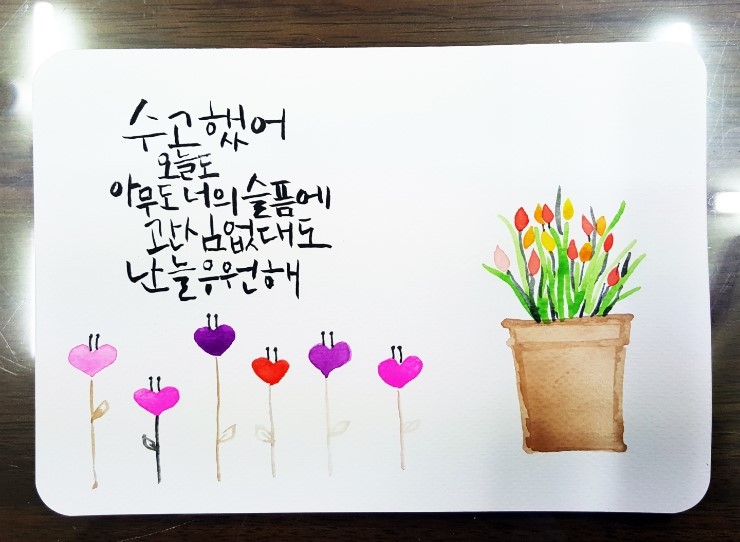 수고했어
오늘도
아무도 너의 슬픔에
관심없대도
난 늘 응원해